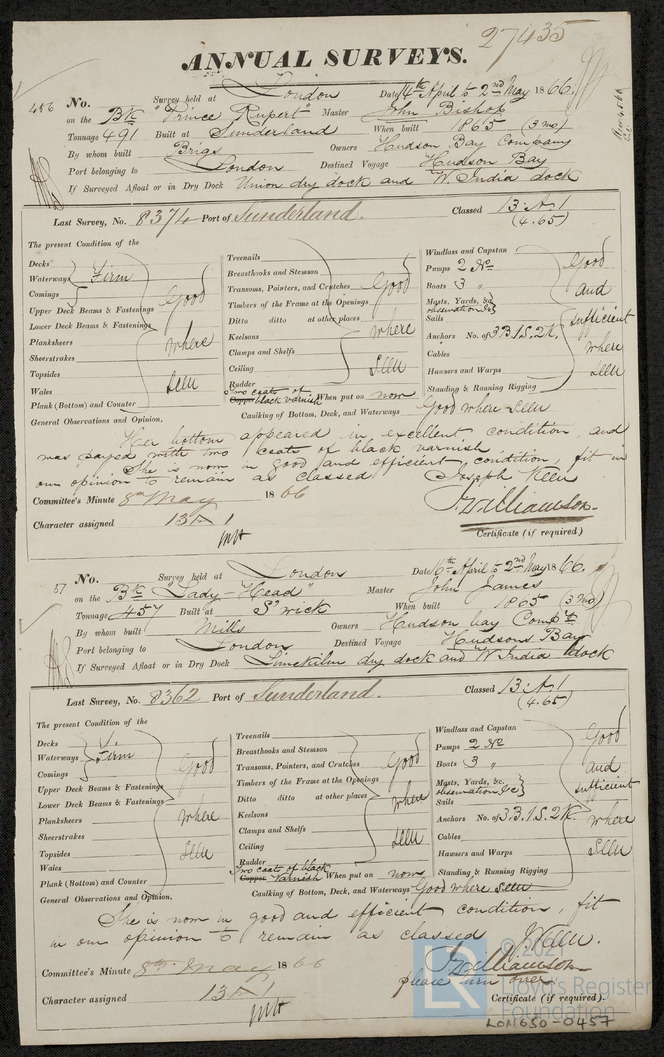 27435
ANNUAL SURVEYS.
486 No. Survey held at London Date 4th April to 2nd May 1866.
on the Bk "Prince Rupert" Master John Bishop
Tonnage 491 Built at Sunderland When built 1865 (3 mo)
By whom built Brigs Owners Hudson Bay Company
Port belonging to London Destined Voyage Hudson Bay
If Surveyed Afloat or in Dry Dock Union dry dock and W. India dock
Last Survey, No. 8374 Port of Sunderland. Classed 13.A.1
(4.65)
The present Condition of the
Decks
Waterways Firm
Comings
Upper Deck Beams & Fastenings Good
Lower Deck Beams & Fastenings
Planksheers where
Sheerstrakes
Topsides
Wales seen
Plank (Bottom) and Counter
Treenails
Breasthooks and Stemson
Transoms, Pointers, and Crutches Good
Timbers of the Frame at the Openings
Ditto ditto at other places where
Keelsons
Clamps and Shelfs
Ceiling seen
Rudder
two coats of
Copper black varnish When put on now
Windlass and Capstan Good
Pumps 2 No
Boats 3 " and
Masts, Yards, &c
Sails sufficient
Anchors No. of 3B.1S.2K.
Cables where
Hawsers and Warps seen
Standing & Running Rigging
Caulking of Bottom, Deck, and Waterways Good where seen
General Observations and Opinion,
Her bottom appeared in excellent condition, and
was payed with two coats of black varnish
She is now in good and efficient condition, fit in
our opinion to remain as classed Joseph Keen
J Williamson.
Committee's Minute 8th May 1866
Character assigned 13 A 1
Certificate (if required)
57 No. Survey held at London Date 6th April to 2nd May 1866.
on the Bk "Lady-Head" Master John James
Tonnage 457 Built at S'wick When built 1865 (3 mo)
By whom built Mills Owners Hudson bay Compy
Port belonging to London Destined Voyage Hudsons Bay
If Surveyed Afloat or in Dry Dock Limekiln dry dock and W India dock
Last Survey, No. 8362 Port of Sunderland. Classed 13.A.1
(4.65)
The present Condition of the
Decks
Waterways Firm
Comings Good
Upper Deck Beams & Fastenings
Lower Deck Beams & Fastenings
Planksheers where
Sheerstrakes
Topsides seen
Wales
Plank (Bottom) and Counter
Treenails
Breasthooks and Stemson
Transoms, Pointers, and Crutches Good
Timbers of the Frame at the Openings
Ditto ditto at other places where
Keelsons
Clamps and Shelfs
Ceiling seen
Rudder
Two coats of black
Copper Varnish When put on now
Windlass and Capstan Good
Pumps 2 No
Boats 3 " and
Masts, Yards, &c. sufficient
Sails
Anchors No. of 3B.1S.2K. where
Cables
Hawsers and Warps seen
Standing & Running Rigging
Caulking of Bottom, Deck, and Waterways Good where seen
General Observations and Opinion,
She is now in good and efficient condition, fit
in our opinion to remain as classed J Keen.
J Williamson
please turn over
Committee's Minute 8th May 1866
Character assigned 13 A 1
Certificate (if required).
LON650-0457
LR
Lloyd's Register
Foundation